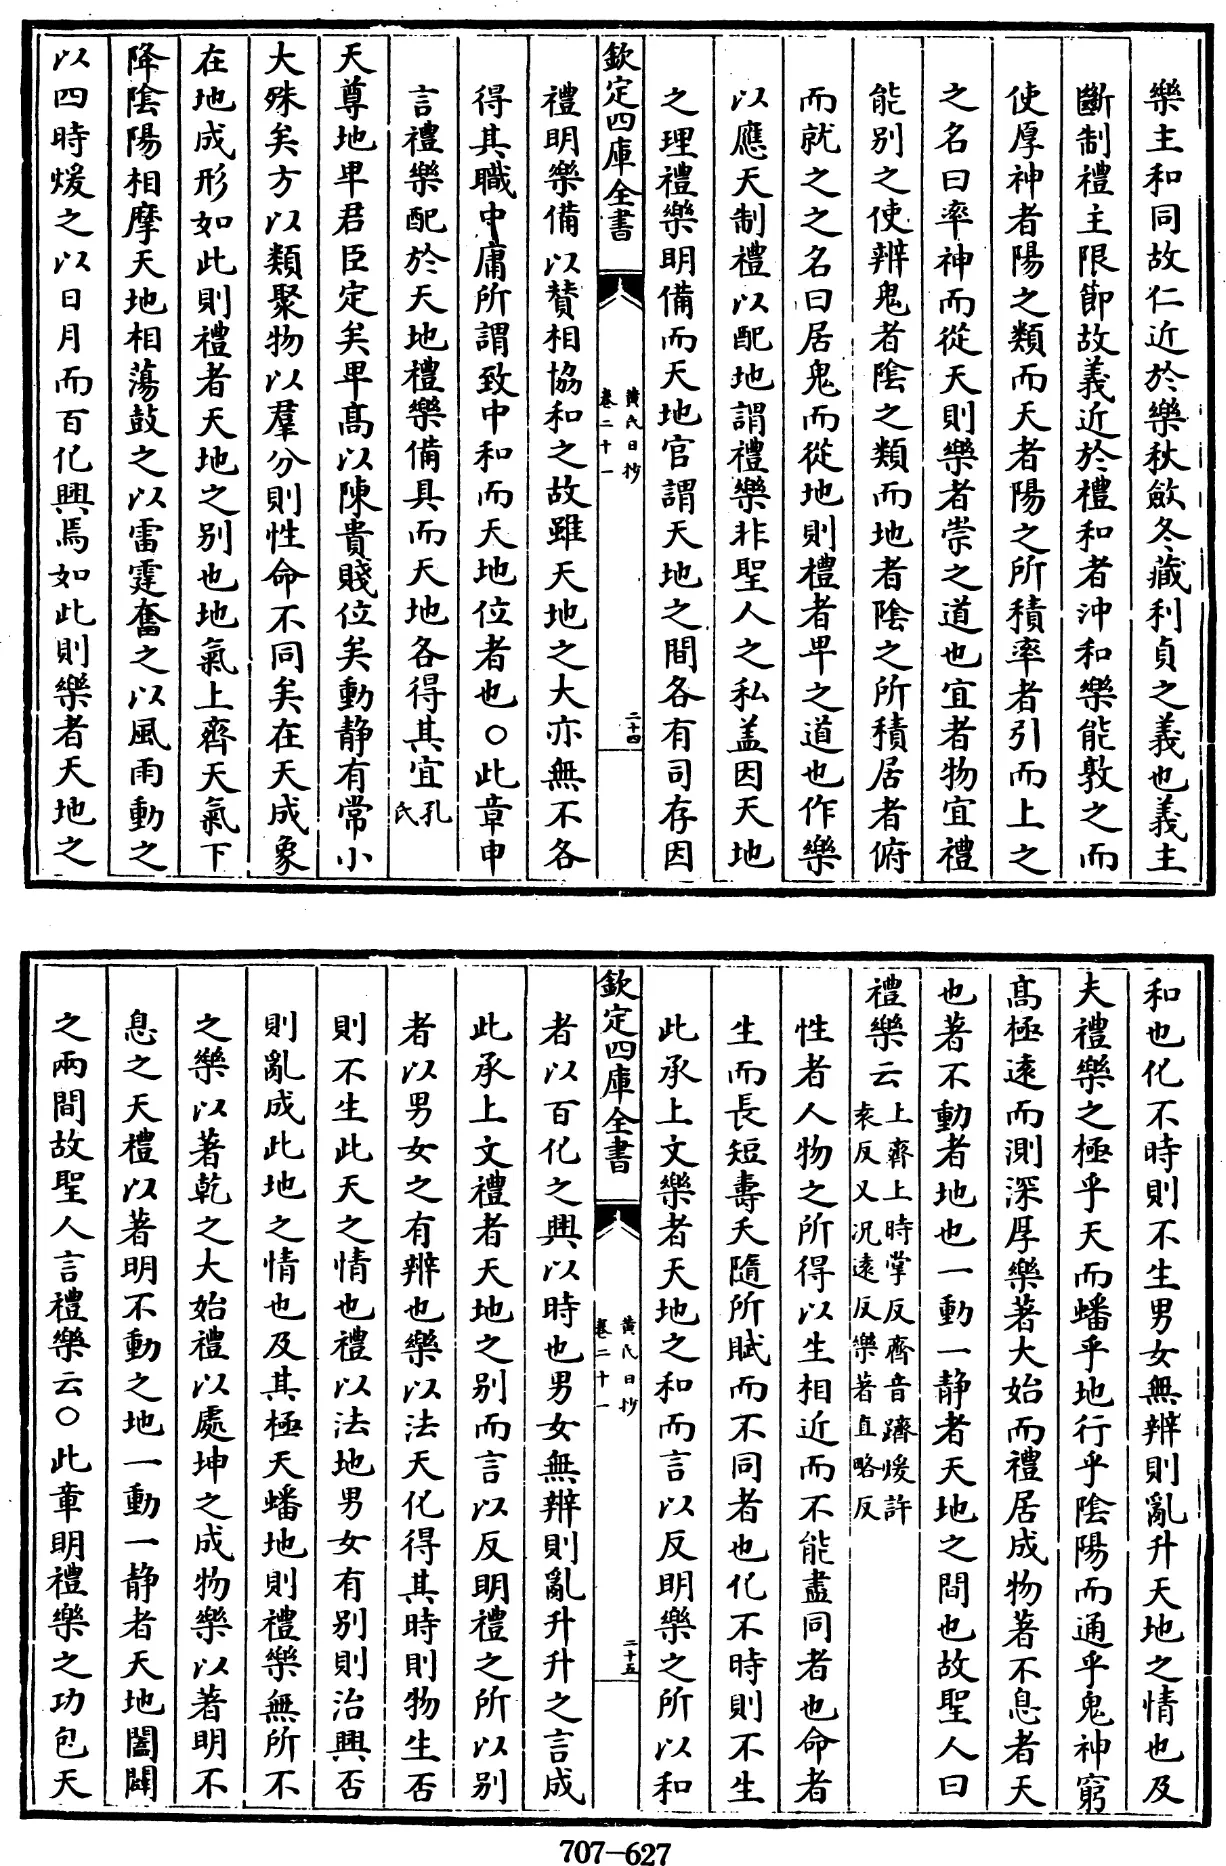 樂主和同故仁近於樂秋斂冬藏利貞之義也義主
斷制禮主限節故義近於禮和者沖和樂能敦之而
使厚神者陽之類而天者陽之所積率者引而上之
之名曰率神而從天則樂者崇之道也宜者物宜禮
能别之使辨鬼者陰之類而地者陰之所積居者俯
而就之之名曰居鬼而從地則禮者卑之道也作樂
以應天制禮以配地謂禮樂非聖人之私蓋因天地
之理禮樂明備而天地官謂天地之間各有司存因
欽定四庫全書
黄氏日抄
卷二十一
二十四
禮明樂備以贊相協和之故雖天地之大亦無不各
得其職中庸所謂致中和而天地位者也○此章申
言禮樂配於天地禮樂備具而天地各得其宜孔
氏
天尊地卑君臣定矣卑髙以陳貴賤位矣動静有常小
大殊矣方以類聚物以羣分則性命不同矣在天成象
在地成形如此則禮者天地之别也地氣上齊天氣下
降陰陽相摩天地相蕩鼓之以雷霆奮之以風雨動之
以四時煖之以日月而百化興焉如此則樂者天地之
和也化不時則不生男女無辨則亂升天地之情也及
夫禮樂之極乎天而蟠乎地行乎陰陽而通乎鬼神窮
髙極逺而測深厚樂著大始而禮居成物著不息者天
也著不動者地也一動一静者天地之間也故聖人曰
禮樂云上齊上時掌反齊音躋煖許
袁反又況逺反樂著直略反
性者人物之所得以生相近而不能盡同者也命者
生而長短壽夭隨所賦而不同者也化不時則不生
此承上文樂者天地之和而言以反明樂之所以和
欽定四庫全書
黄氏日抄
卷二十一
二十五
者以百化之興以時也男女無辨則亂升升之言成
此承上文禮者天地之别而言以反明禮之所以别
者以男女之有辨也樂以法天化得其時則物生否
則不生此天之情也禮以法地男女有别則治興否
則亂成此地之情也及其極天蟠地則禮樂無所不
之樂以著乾之大始禮以處坤之成物樂以著明不
息之天禮以著明不動之地一動一静者天地闔闢
之兩間故聖人言禮樂云○此章明禮樂之功包天
707—627